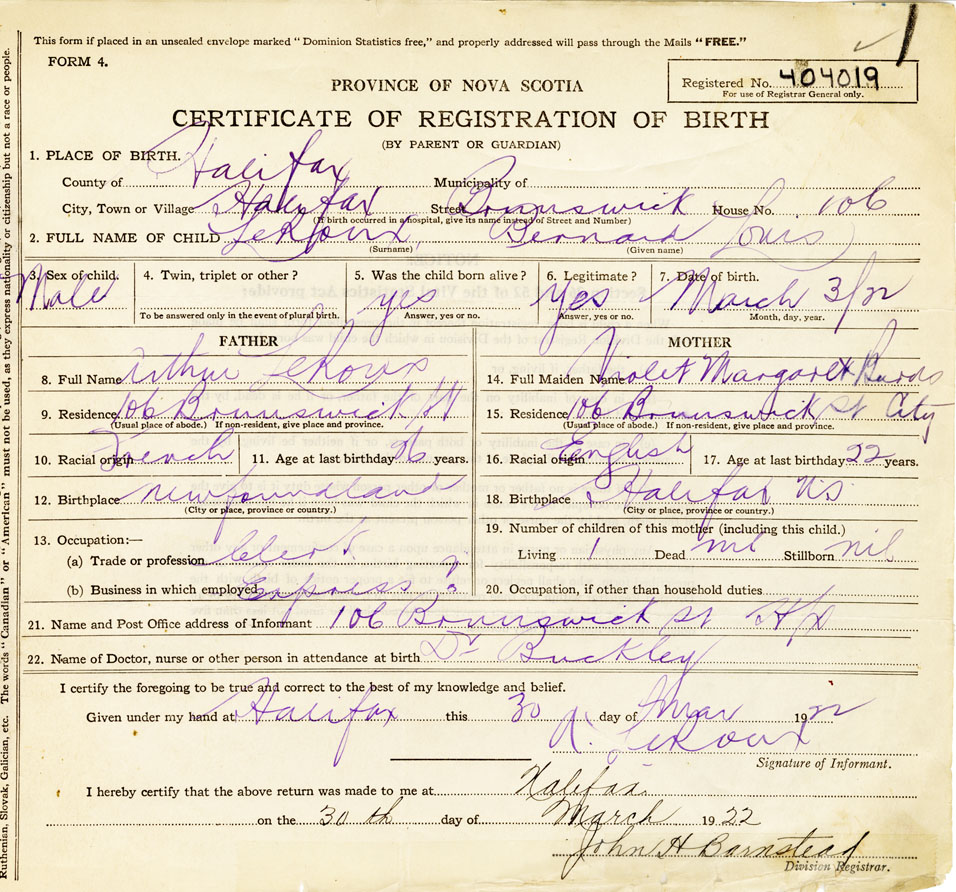 This form if placed in an unsealed envelope marked "Dominion Statistics free," and properly addressed will pass through the Mails "FREE."
FORM 4.
Registered No. 404019
For use of Registrar General only.
PROVINCE OF NOVA SCOTIA
CERTIFICATE OF REGISTRATION OF BIRTH
(BY PARENT OR GUARDIAN)
1. PLACE OF BIRTH.
County of Halifax Municipality of
City, Town or Village Halifax Street Brunswick House No. 106
(If birth occurred in a hospital, give its name instead of Street and Number)
2. FULL NAME OF CHILD LeRoux, Bernard Louis
(Surname) (Given name)
3. Sex of child. 4. Twin, triplet or other? 5. Was the child born alive? 6. Legitimate? 7. Date of birth.
Male yes Yes March 3/22
To be answered only in the event of plural birth. Answer, yes or no. Answer, yes or no. Month, day, year.
FATHER MOTHER
8. Full Name Arthur LeRoux 14. Full Maiden Name Violet Margaret
9. Residence 106 Brunswick St 15. Residence 106 Brunswick St City
(Usual place of abode.) If non-resident, give place and province. (Usual place of abode.) If non-resident, give place and province.
10. Racial origin French 11. Age at last birthday 26 years. 16. Racial origin English 17. Age at last birthday 22 years.
12. Birthplace Newfoundland 18. Birthplace Halifax NS
(City or place, province or country.) (City or place, province or country.)
13. Occupation:— 19. Number of children of this mother (including this child.)
(a) Trade or profession Clerk Living 1 Dead nil Stillborn nil
(b) Business in which employed Express 20. Occupation, if other than household duties
21. Name and Post Office address of Informant 106 Brunswick St Hfx
22. Name of Doctor, nurse or other person in attendance at birth Dr Buckley
I certify the foregoing to be true and correct to the best of my knowledge and belief.
Given under my hand at Halifax this 30 day of Mar 1922
A. LeRoux
Signature of Informant.
I hereby certify that the above return was made to me at Halifax
on the 30th day of March 1922
John H Barnstead
Division Registrar.
Ruthenian, Slovak, Galician, etc. The words "Canadian" or "American" must not be used, as they express nationality or citizenship but not a race or people.